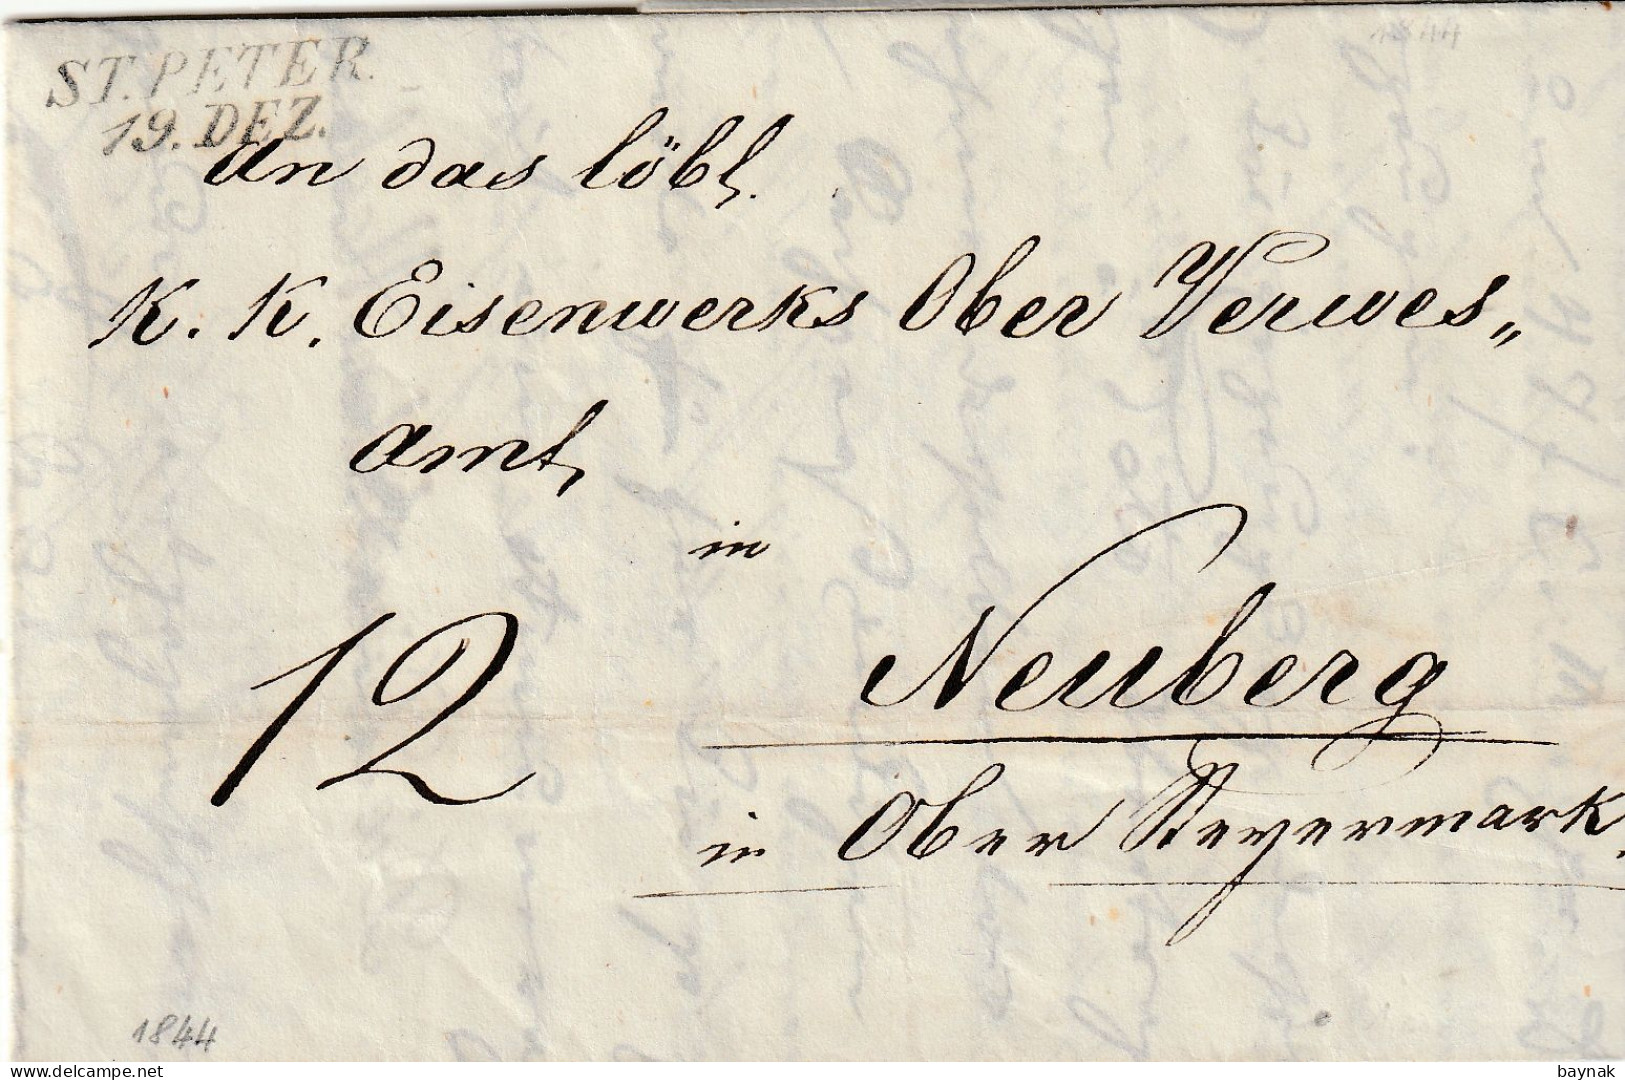 1844
ST. PETER.
19. DEZ.
An das löbl.
K. K. Eisenwerks Ober Verwes„
amt,
in
Neuberg
12
in Ober Steyermark.
1844
delcampe.net
baynak